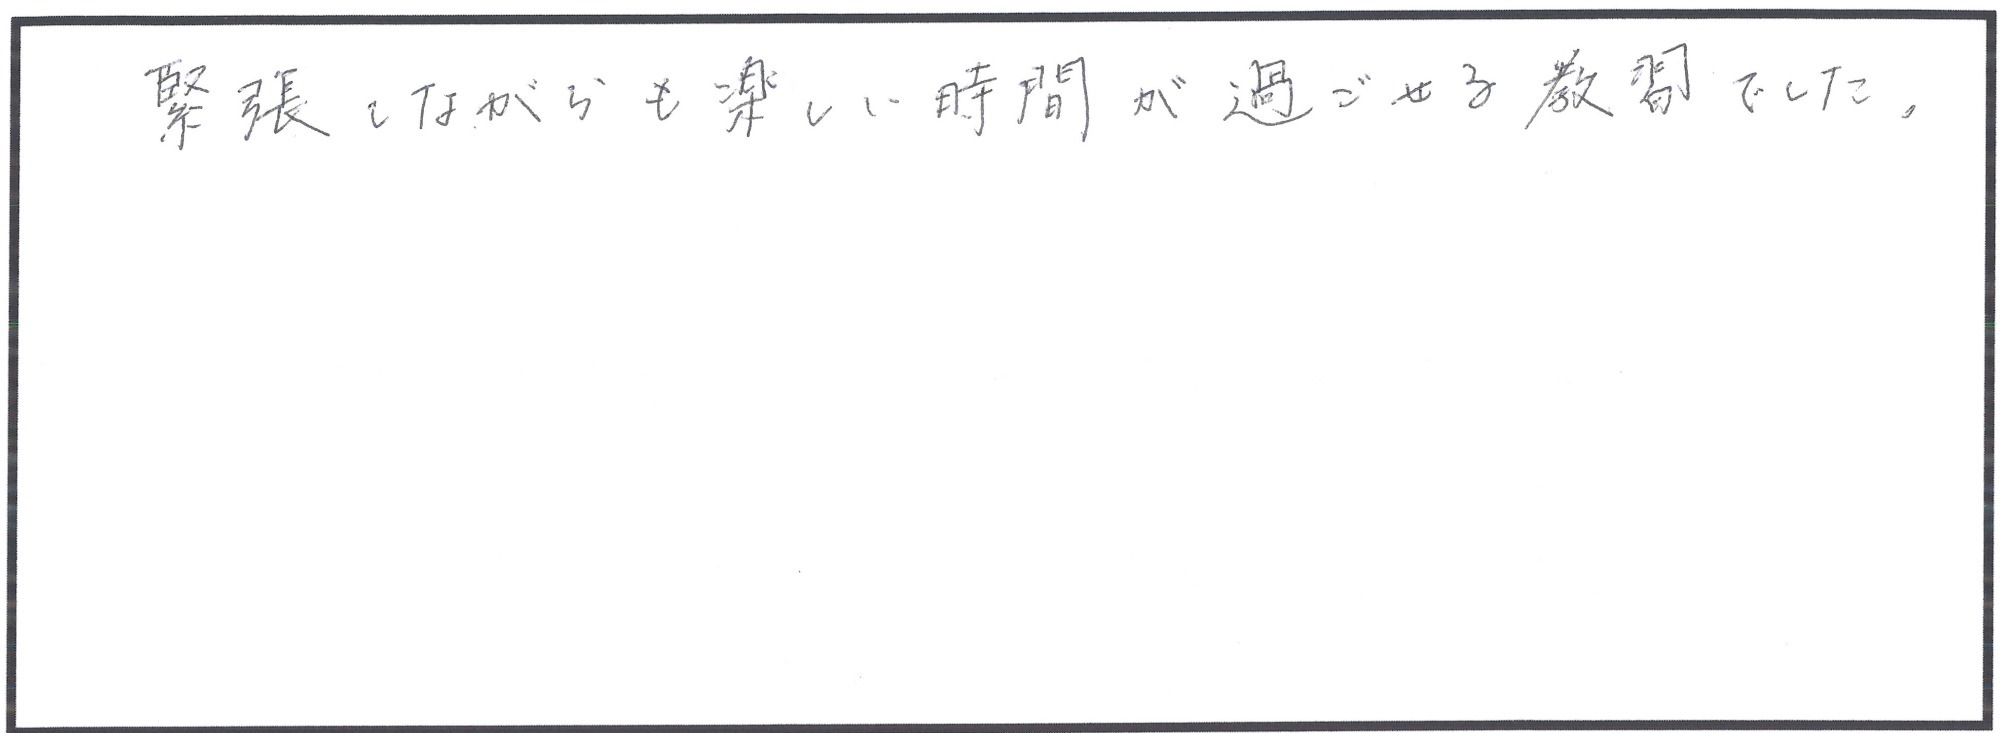 緊張しながらも楽しい時間が過ごせる教習でした。